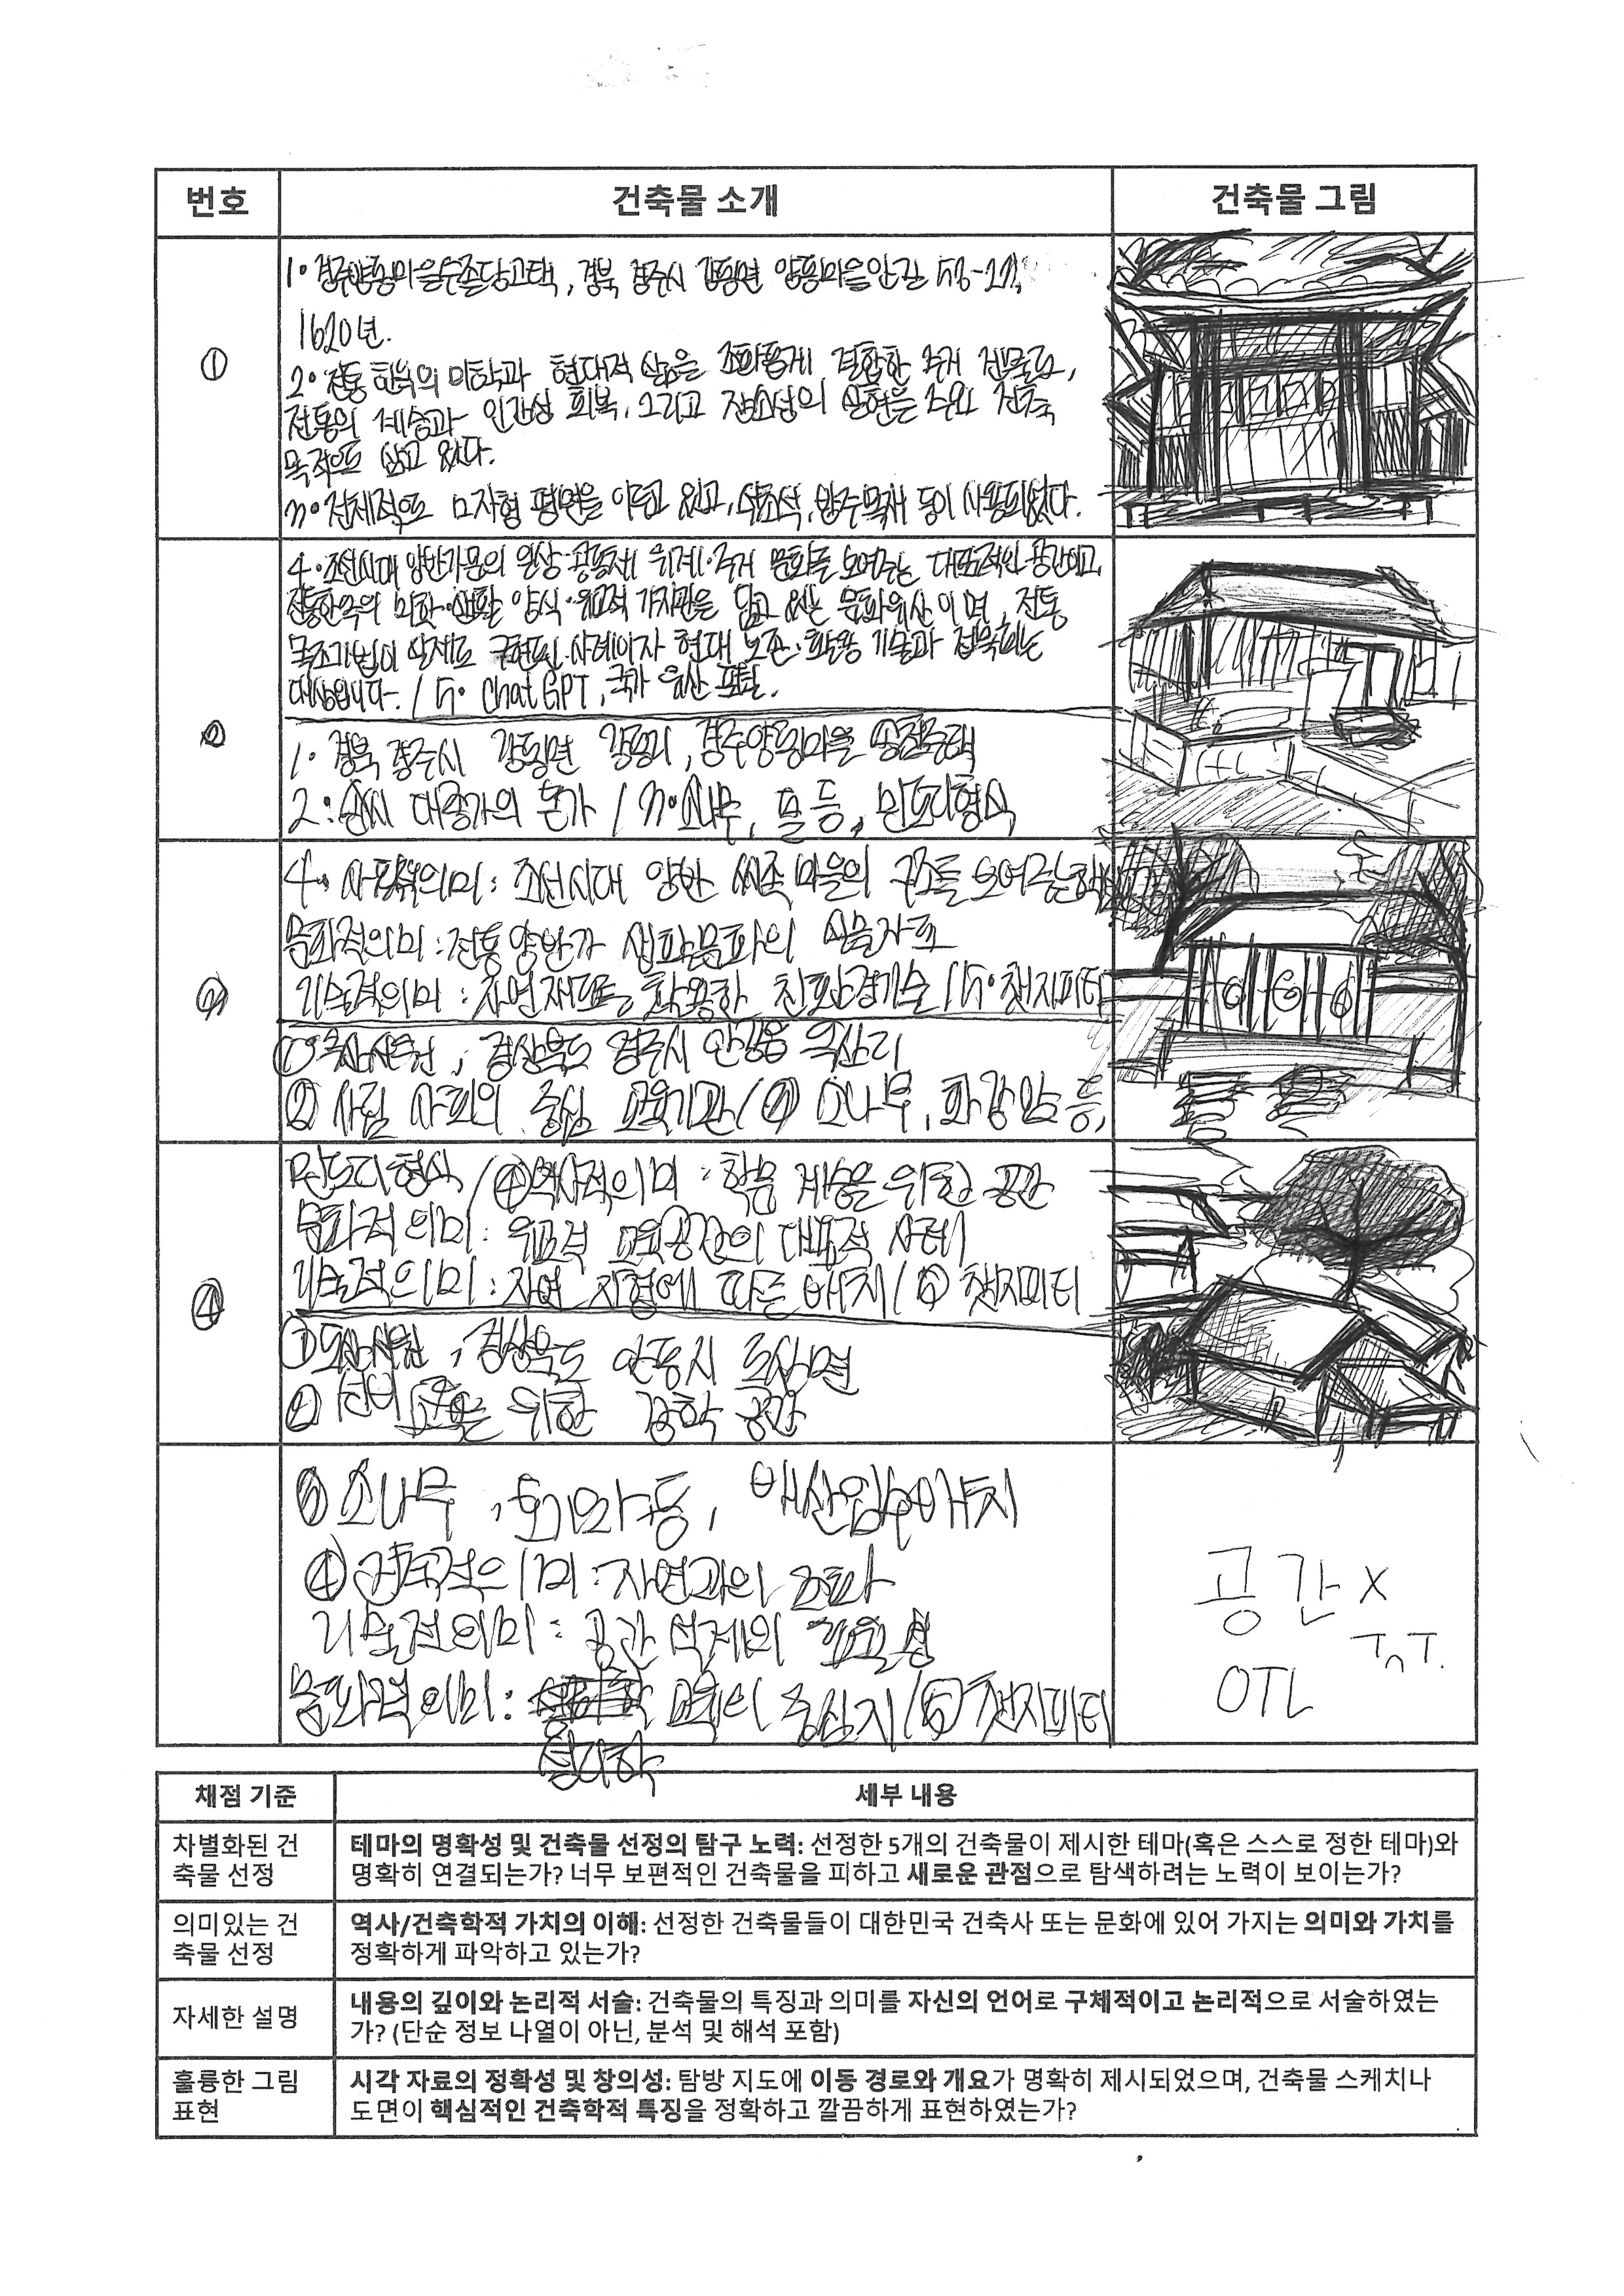 번호 건축물 소개 건축물 그림
①
1. 경주양동마을수졸당고택, 경북 경주시 강동면 양동마을안길 53-27,
1620년.
2. 전통 한옥의 미학과 현대적 삶을 조화롭게 결합한 주거 건축물로,
전통의 계승과 인간성 회복, 그리고 장소성의 실현을 주요 건축
목적으로 삼고 있다.
3. 전체적으로 ㅁ자형 평면을 이루고 있고, 석초석, 방주목재 등이 사용되었다.
②
4. 조선시대 양반가문의 일상·공동체 위계·주거 문화를 보여주는 대표적인 공간이고,
전통한옥의 미학·생활 양식·유교적 가치관을 담고 있는 문화유산이며, 전통
목조기법이 실제로 구현된 사례이자 현대 보존·활용 기술과 접목되는
대상입니다. / 5. Chat GPT, 국가 유산 포털.
1. 경북 경주시 강동면 강동리, 경주양동마을 송첨종택
2. 손씨 대종가의 본가 / 3. 소나무, 돌 등, 민도리형식
③
4. 의미: 조선시대 양반 씨족 마을의 구조를 보여주는
문화적의미: 전통양반가 생활문화의 실물자료
기술적의미: 자연재료를 활용한 친환경기술 / 5. 챗지피티
① 옥산서원, 경상북도 경주시 안강읍 옥산리
② 사림 사회의 중심 교육기관 / ③ 소나무, 화강암 등,
④
민도리형식 / ④ 역사적의미: 학문 계승을 위한 공간
문화적 의미: 유교적 교육공간의 대표적 사례
기술적의미: 자연 지형에 따른 배치 / ⑤ 챗지피티
① 도산서원, 경상북도 안동시 도산면
② 선비 교육을 위한 강학 공간
③ 소나무, 회기와 등, 배산임수배치
④ 건축적의미: 자연과의 조화
기술적의미: 공간 설계의 효율성
문화적 의미: 교육의 중심지 / ⑤ 챗지피티
성리학
공간 X
T^T.
OTL
채점 기준 세부 내용
차별화된 건
축물 선정
테마의 명확성 및 건축물 선정의 탐구 노력: 선정한 5개의 건축물이 제시한 테마(혹은 스스로 정한 테마)와
명확히 연결되는가? 너무 보편적인 건축물을 피하고 새로운 관점으로 탐색하려는 노력이 보이는가?
의미있는 건
축물 선정
역사/건축학적 가치의 이해: 선정한 건축물들이 대한민국 건축사 또는 문화에 있어 가지는 의미와 가치를
정확하게 파악하고 있는가?
자세한 설명
내용의 깊이와 논리적 서술: 건축물의 특징과 의미를 자신의 언어로 구체적이고 논리적으로 서술하였는
가? (단순 정보 나열이 아닌, 분석 및 해석 포함)
훌륭한 그림
표현
시각 자료의 정확성 및 창의성: 탐방 지도에 이동 경로와 개요가 명확히 제시되었으며, 건축물 스케치나
도면이 핵심적인 건축학적 특징을 정확하고 깔끔하게 표현하였는가?